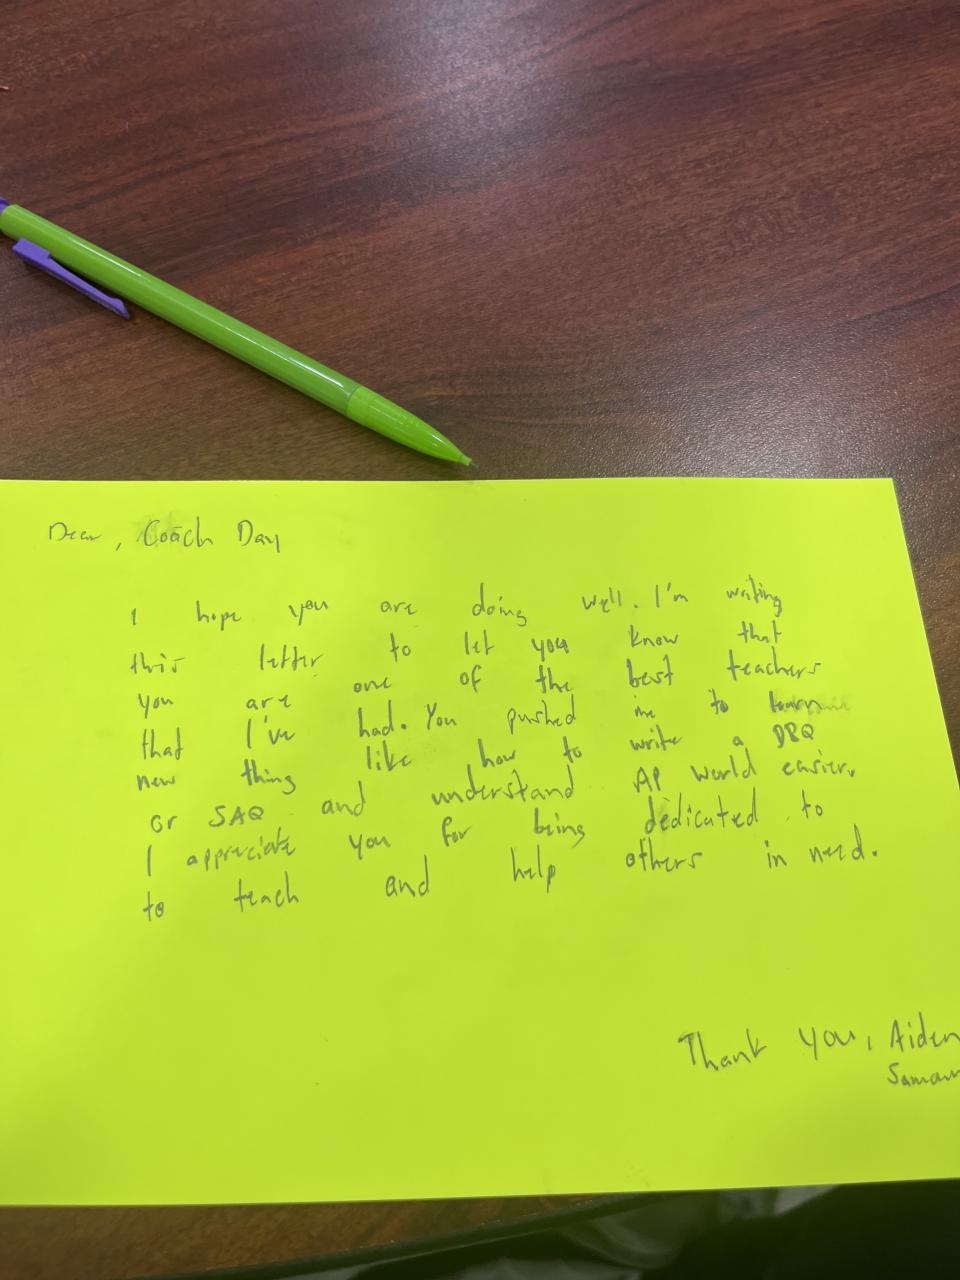 Dear, Coach Day
I hope you are doing well. I'm writing
this letter to let you know that
you are one of the best teachers
that I've had. You pushed me to learn
new thing like how to write a DBQ
or SAQ and understand AP world easier.
I appreciate you for being dedicated to
to teach and help others in need.
Thank you, Aiden